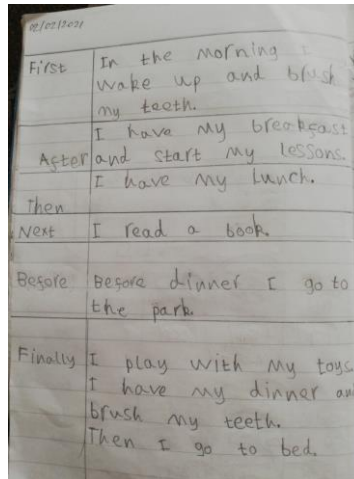 02/02/2021
First In the morning I
wake up and brush
my teeth.
I have my breakfast
After and start my lessons.
I have my Lunch.
Then
Next I read a book.
Before Before dinner I go to
the park.
Finally I play with my toys
I have my dinner and
brush my teeth.
Then I go to bed.